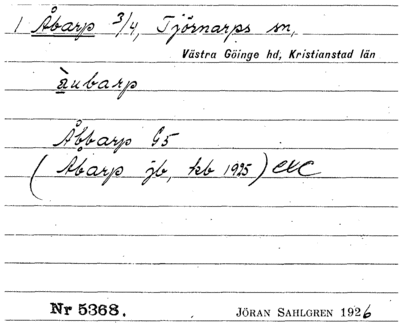 1 Åbarp 3/4, Tjörnarps sn,
Västra Göinge hd, Kristianstad län
àubarp
Åbbarp G5
(Abarp jb, kb 1925)
Nr 5368.
JÖRAN SAHLGREN 1926